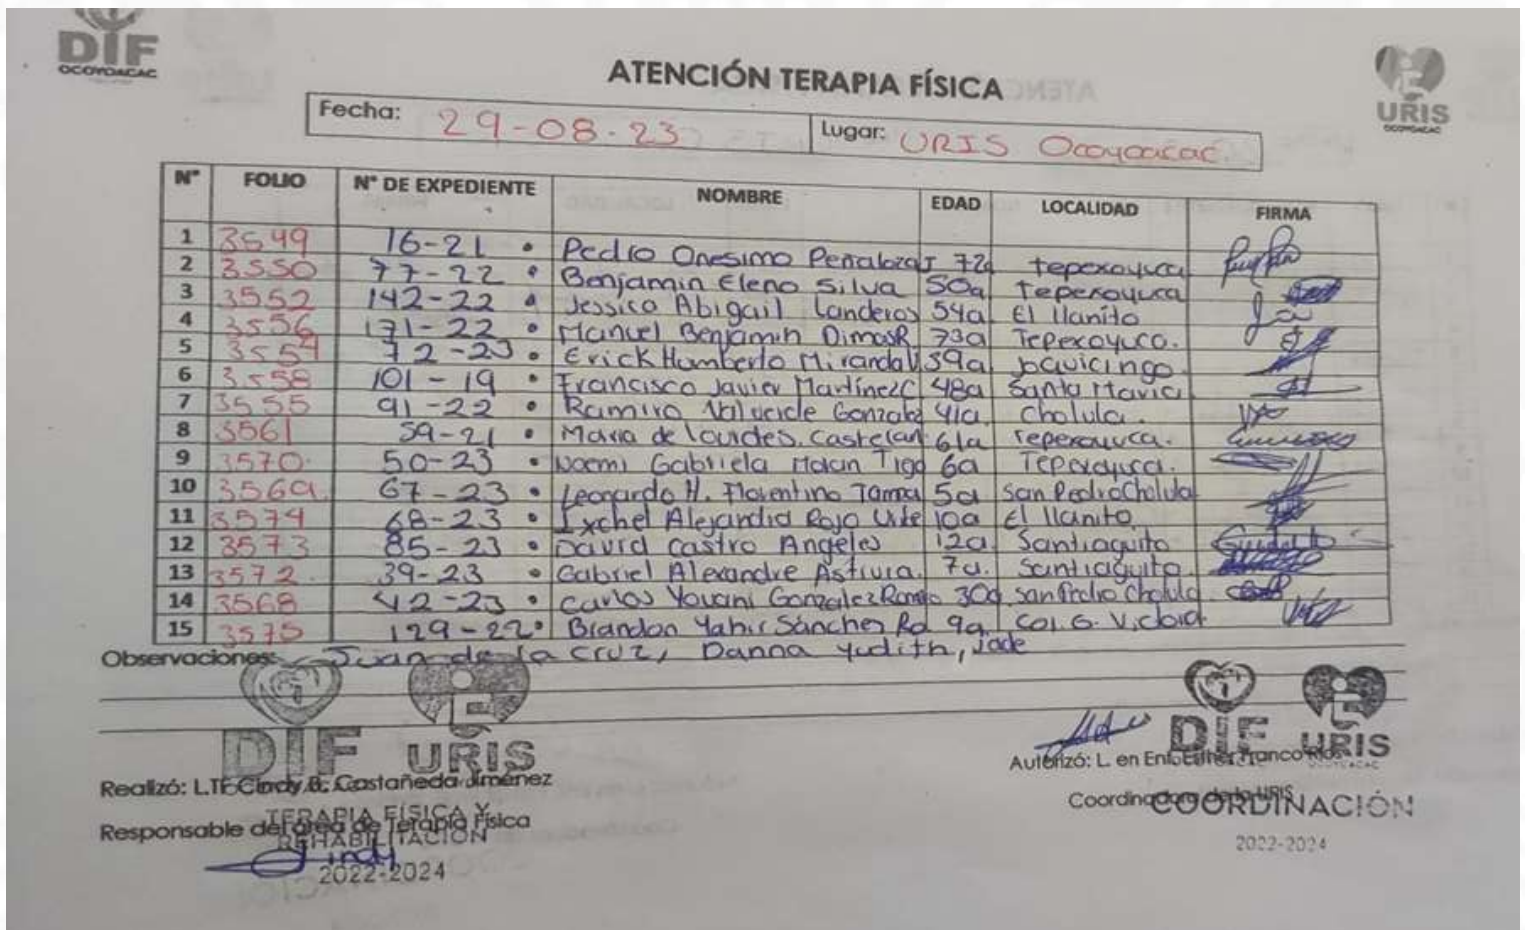 DIF
OCOYOACAC
ATENCIÓN TERAPIA FÍSICA
URIS
OCOYOACAC
Fecha: 29-08-23 Lugar: URIS Ocoyoacac
N° FOLIO N° DE EXPEDIENTE NOMBRE EDAD LOCALIDAD FIRMA
1 3549 16-21 Pedro Onesimo Peñaloza 72a tepexoyuca
2 3550 77-22 Benjamin Eleno Silva 50a Tepexoyuca
3 3552 142-22 Jessica Abigail Landeros 54a El llanito
4 3556 171-22 Manuel Benjamin 73a Tepexoyuca.
5 72-23 Erick Humberto 39a
6 3558 101-19 Francisco Javier Martínez C 48a Santa Maria
7 3555 91-22 Ramiro 41a Cholula.
8 3561 59-21 Maria de lourdes. Castelan 61a Tepexoyuca.
9 3570. 50-23 Noemi Gabriela 6a Tepexoyuca.
10 3569. 67-23 Leonardo H. Florentino 5a San Pedro Cholula
11 3574 68-23 Ixchel Alejandra Rojo 10a El llanito
12 3573 85-23 David Castro Angeles 12a Santiaguito
13 3572. 39-23 Gabriel Alexandre 7a. Santiaguito.
14 3568 42-23 Carlos Yovani Gonzalez 30a San Pedro Cholula
15 3575 129-22 Brandon Yahir Sánchez 9a Col. G. Victoria
Observaciones: Juan de la Cruz, Danna Yudith, Jade
DIF URIS
DIF URIS
OCOYOACAC
Realizó: L.TF Cindy B. Castañeda Jiménez
Autorizó: L. en Enf. Esther Franco
TERAPIA FÍSICA Y
Responsable del área de Terapia Física
REHABILITACIÓN
Cindy
2022-2024
Coordinadora de la URIS
COORDINACIÓN
2022-2024